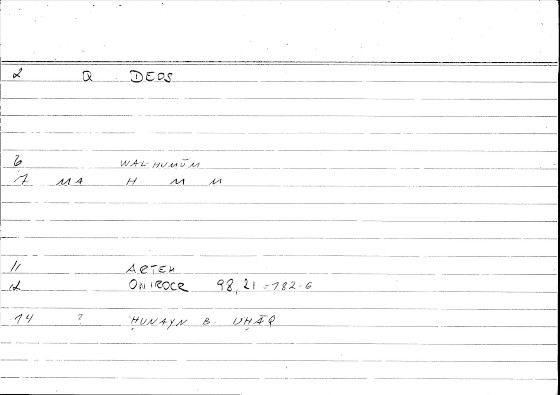 2 Q DEOS
6 WAL-HUMŪM
7 MA H M M
11 ARTEM
12 ONIROCR 98,21 = 182-6
14 ? ḤUNAYN B. ISḤĀQ